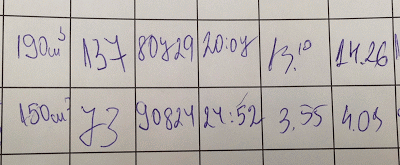 190cm³ 137 80729 20:07 13.10 14.26
150cm³ 73 90824 24:52 3.55 4.09